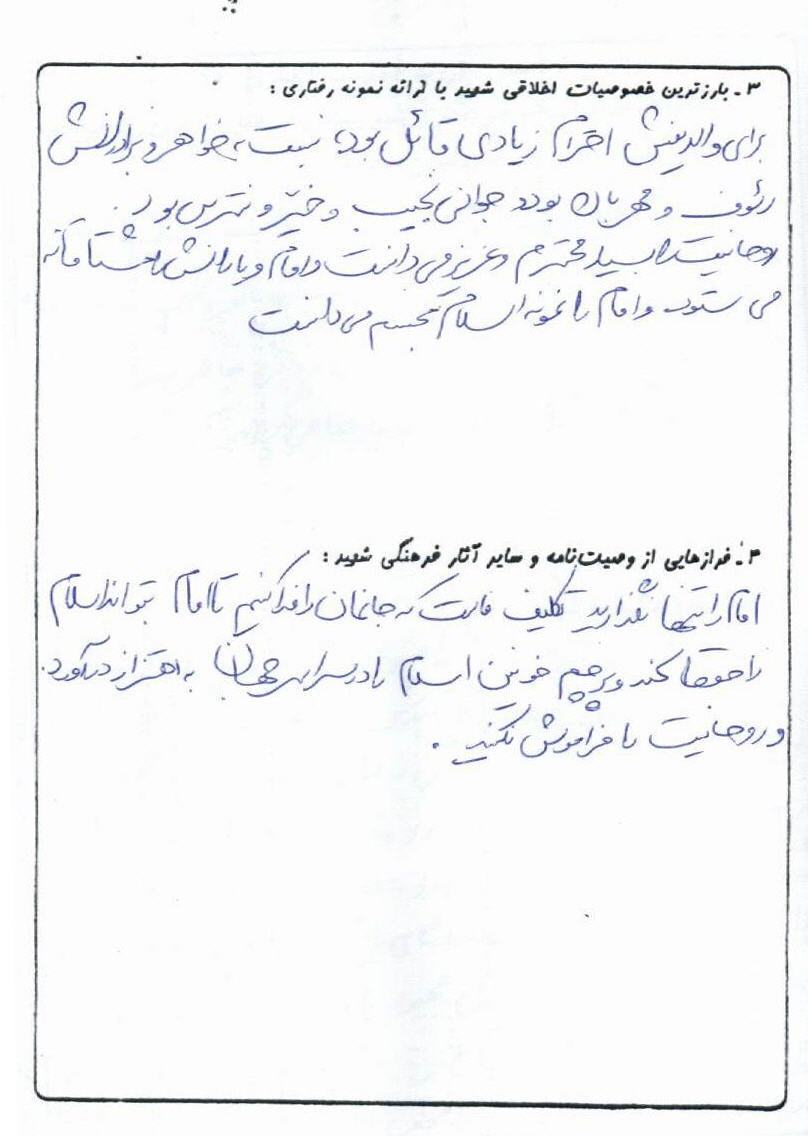 ۳ ـ بارزترین خصوصیات اخلاقی شهید با ارائه نمونه رفتاری :
برای والدینش احترام زیادی قائل بود، نسبت به خواهر و برادرانش
رئوف و مهربان بود جوانی نجیب و خیّر و نترس بود.
روحانیت را بسیار محترم و عزیز می دانست و امام و یارانش را مشتاقانه
می ستود و امام را نمونه اسلام مجسم می دانست
۴ ـ فرازهایی از وصیت‌نامه و سایر آثار فرهنگی شهید :
امام را تنها نگذارید تکلیف ماست که جانمان را فدا کنیم تا امام بتواند اسلام
را حفظ کند و پرچم خونین اسلام را در سراسر جهان به اهتزاز درآورد.
و روحانیت را فراموش نکنید .